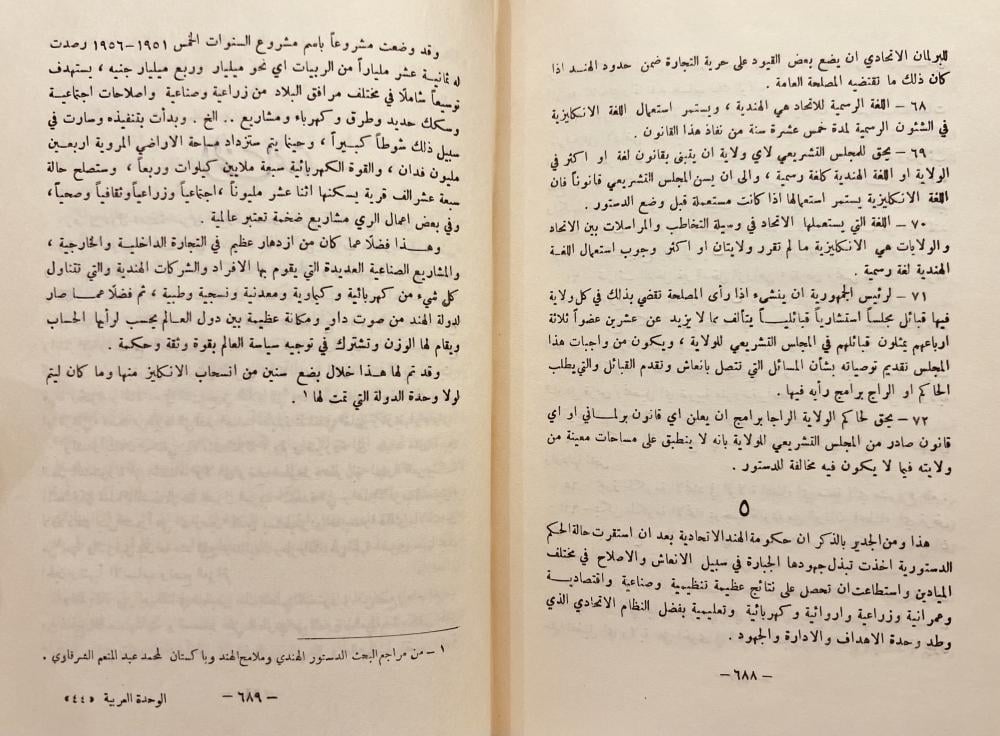 للبرلمان الاتحادي ان يضع بعض القيود على حرية التجارة ضمن حدود الهند اذا
كان ذلك ما تقتضيه المصلحة العامة .
٦٨ – اللغة الرسمية للاتحاد هي الهندية ، ويستمر استعمال اللغة الانكليزية
في الشئون الرسمية لمدة خمس عشرة سنة من نفاذ هذا القانون .
٦٩ – يحق للمجلس التشريعي لاي ولاية ان يتبنى بقانون لغة او اكثر في
الولاية او اللغة الهندية كلغة رسمية ، والى ان يسن المجلس التشريعي قانوناً فان
اللغة الانكليزية يستمر استعمالها اذا كانت مستعملة قبل وضع الدستور .
٧٠ – اللغة التي يستعملها الاتحاد في وسيلة التخاطب والمراسلات بين الاتحاد
والولايات هي الانكليزية ما لم تقرر ولايتان او اكثر وجوب استعمال اللغة
الهندية لغة رسمية .
٧١ – لرئيس الجمهورية ان ينشىء اذا رأى المصلحة تقضي بذلك في كل ولاية
فيها قبائل مجلساً استشارياً قبائلياً يتألف مما لا يزيد عن عشرين عضواً ثلاثة
ارباعهم يمثلون قبائلهم في المجلس التشريعي للولاية ، ويكون من واجبات هذا
المجلس تقديم توصياته بشأن المسائل التي تتصل بانعاش وتقدم القبائل والتي يطلب
الحاكم او الراج برامج رأيه فيها .
٧٢ – يحق لحاكم الولاية الراجا برامج ان يعلن اي قانون برلماني او اي
قانون صادر من المجلس التشريعي للولاية بانه لا ينطبق على مساحات معينة من
ولايته فيما لا يكون فيه مخالفة للدستور .
٥
هذا ومن الجدير بالذكر ان حكومة الهند الاتحادية بعد ان استقرت حالة الحكم
الدستورية اخذت تبذل جهودها الجبارة في سبيل الانعاش والاصلاح في مختلف
الميادين واستطاعت ان تحصل على نتائج عظيمة تنظيمية وصناعية واقتصادية
وعمرانية وزراعية واروائية وكهربائية وتعليمية بفضل النظام الاتحادي الذي
وطد وحدة الاهداف والادارة والجهود .
– ٦٨٨ –
وقد وضعت مشروعاً باسم مشروع السنوات الخمس ١٩٥١–١٩٥٦ رصدت
له ثمانية عشر ملياراً من الربيات اي نحو ميليار وربع ميليار جنيه ، يستهدف
توسيعاً شاملًا في مختلف مرافق البلاد من زراعية وصناعية واصلاحات اجتماعية
وسكك حديد وطرق وكهرباء ومشاريع .. الخ . وبدأت بتنفيذه وسارت في
سبيل ذلك شوطاً كبيراً ، وحينما يتم ستزداد مساحة الاراضي المروية اربعين
مليون فدان ، والقوة الكهربائية سبعة ملايين كيلوات وربعاً ، وستصلح حالة
سبعة عشر الف قرية يسكنها اثنا عشر مليوناً ، اجتماعياً وزراعياً وثقافياً وصحياً ،
وفي بعض اعمال الري مشاريع ضخمة تعتبر عالمية .
وهذا فضلًا عما كان من ازدهار عظيم في التجارة الداخلية والخارجية ،
والمشاريع الصناعية العديدة التي يقوم بها الافراد والشركات الهندية والتي تتناول
كل شيء من كهربائية و كيماوية ومعدنية ونسجية وطبية ، ثم فضلًا عما صار
لدولة الهند من صوت داو ومكانة عظيمة بين دول العالم يحسب لرأيها الحساب
ويقام لها الوزن وتشترك في توجيه سياسة العالم بقوة وثقة وحكمة .
وقد تم لها هذا خلال بضع سنين من انسحاب الانكليز منها وما كان ليتم
لولا وحدة الدولة التي تمت لها ١ .
١ – من مراجع البحث الدستور الهندي وملامح الهند وباكستان لمحمد عبد المنعم الشرقاوي .
– ٦٨٩ –
الوحدة العربية «٤٤»